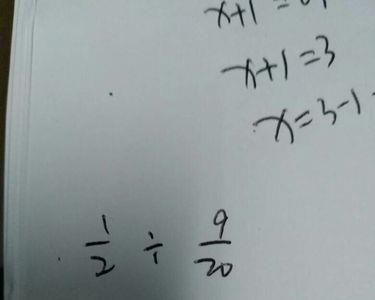 x+1=3
x=3-1
1/2 ÷ 9/20